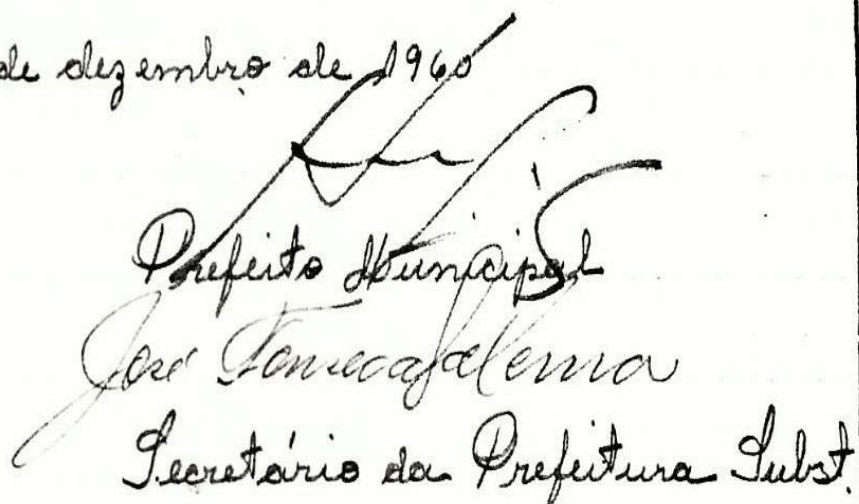 de dezembro de 1960
Prefeito Municipal
José Fonseca
Secretário da Prefeitura Subst.